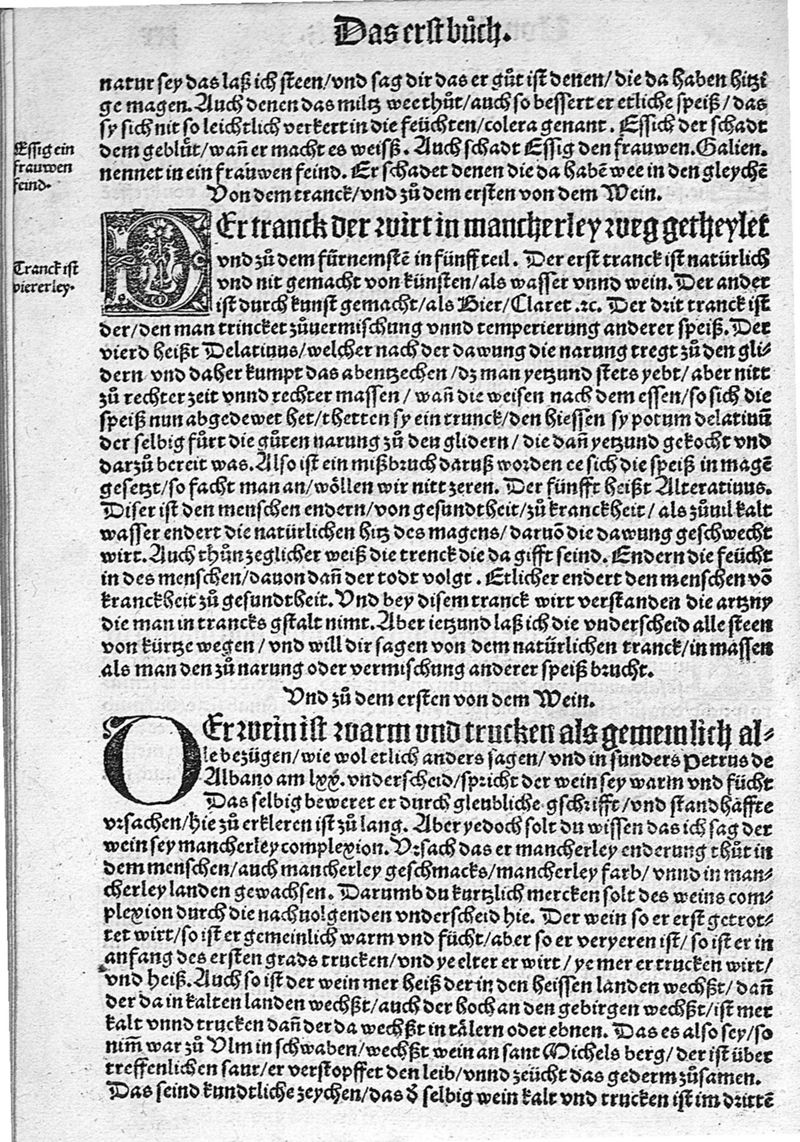 Das erst bůch.
natur sey das laß ich steen/vnd sag dir das er gůt ist denen/die da haben hitzi
ge magen. Auch denen das miltz wee thůt/auch so bessert er etliche speiß/das
sy sich nit so leichtlich verkert in die feüchten/colera genant. Essich der schadt
dem geblůt/wañ er macht es weisß. Auch schadt Essig den frauwen. Galien.
nennet in ein frauwen feind. Er schadet denen die da habẽ wee in den gleychẽ
Essig ein
frauwen
feind.
Von dem tranck/vnd zů dem ersten von dem Wein.
DEr tranck der wirt in mancherley weg getheylet
vnd zů dem fürnemstẽ in fünff teil. Der erst tranck ist natürlich
vnd nit gemacht von künsten/als wasser vnnd wein. Der ander
ist durch kunst gemacht/als Bier/Claret ꝛc. Der drit tranck ist
Tranck ist
viererley.
der/den man trincket zůuermischung vnnd temperierung anderer speiß. Der
vierd heißt Delatiuus/welcher nach der dawung die narung tregt zů den gli-
dern vnd daher kumpt das abentzechen/dz man yetzund stets yebt/aber nitt
zů rechter zeit vnnd rechter massen/wañ die weisen nach dem essen/so sich die
speiß nun abgedewet het/thetten sy ein trunck/den hiessen sy potum delatiuũ
der selbig fürt die gůten narung zů den glidern/die dañ yetzund gekocht vnd
darzů bereit was. Also ist ein mißbruch daruß worden ee sich die speiß in magẽ
gesetzt/so facht man an/wöllen wir nitt zeren. Der fünfft heißt Alteratiuus.
Diser ist den menschen endern/von gesundtheit/zů kranckheit/als zůuil kalt
wasser endert die natürlichen hitz des magens/daruõ die dawung geschwecht
wirt. Auch thůn zeglicher weiß die trenck die da gifft seind. Endern die feücht
in des menschen/dauon dañ der todt volgt. Etlicher endert den menschen võ
kranckheit zů gesundtheit. Vnd bey disem tranck wirt verstanden die artzny
die man in trancks gstalt nimt. Aber ietzund laß ich die vnderscheid alle steen
von kürtze wegen/vnd will dir sagen von dem natürlichen tranck/in massen
als man den zů narung oder vermischung anderer speiß brucht.
Vnd zů dem ersten von dem Wein.
DEr wein ist warm vnd trucken als gemeinlich al-
le bezügen/wie wol etlich anders sagen/vnd in sunders Petrus de
Albano am lxx. vnderscheid/spricht der wein sey warm vnd fücht
Das selbig beweret er durch gleubliche gschrifft/vnd standhäffte
vrsachen/hie zů erkleren ist zů lang. Aber yedoch solt du wissen das ich sag der
wein sey mancherley complexion. Vrsach das er mancherley enderung thůt in
dem menschen/auch mancherley geschmacks/mancherley farb/vnnd in man-
cherley landen gewachsen. Darumb du kurtzlich mercken solt des weins com-
plexion durch die nachuolgenden vnderscheid hie. Der wein so er erst getrot-
tet wirt/so ist er gemeinlich warm vnd fücht/aber so er veryeren ist/so ist er in
anfang des ersten grads trucken/vnd ye elter er wirt/ye mer er trucken wirt/
vnd heiß. Auch so ist der wein mer heiß der in den heissen landen wechßt/dañ
der da in kalten landen wechßt/auch der hoch an den gebirgen wechßt/ist mer
kalt vnnd trucken dañ der da wechßt in tälern oder ebnen. Das es also sey/so
nim̃ war zů Vlm in schwaben/wechßt wein an sant Michels berg/der ist über
treffenlichen saur/er verstopffet den leib/vnnd zeücht das gederm zůsamen.
Das seind kundtliche zeychen/das d̃ selbig wein kalt vnd trucken ist im drittẽ